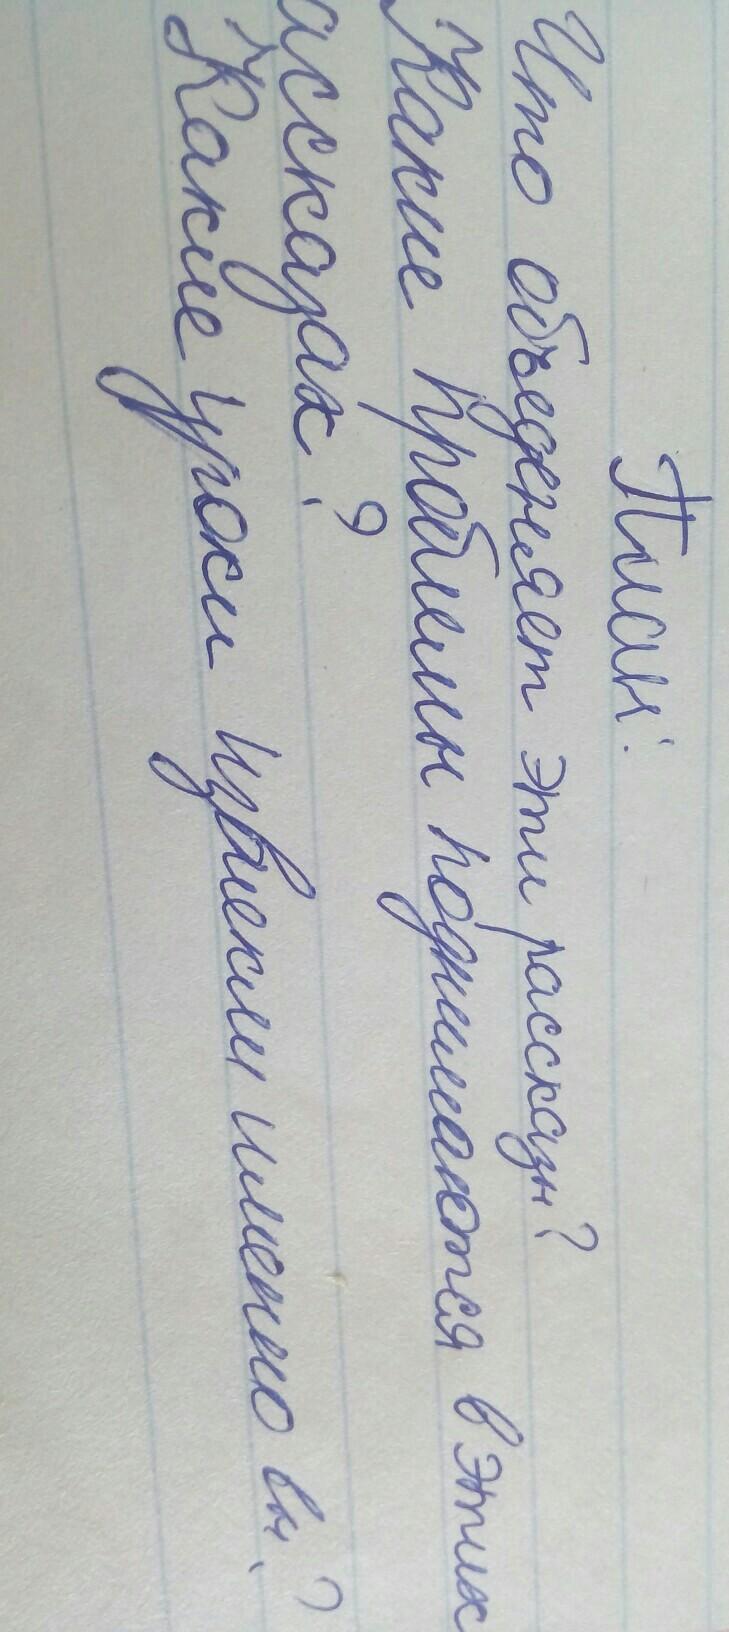 План:
Что объединяет эти рассказы?
Какие проблемы поднимаются в этих
ассказах?
Какие уроки извлекли именно вы?